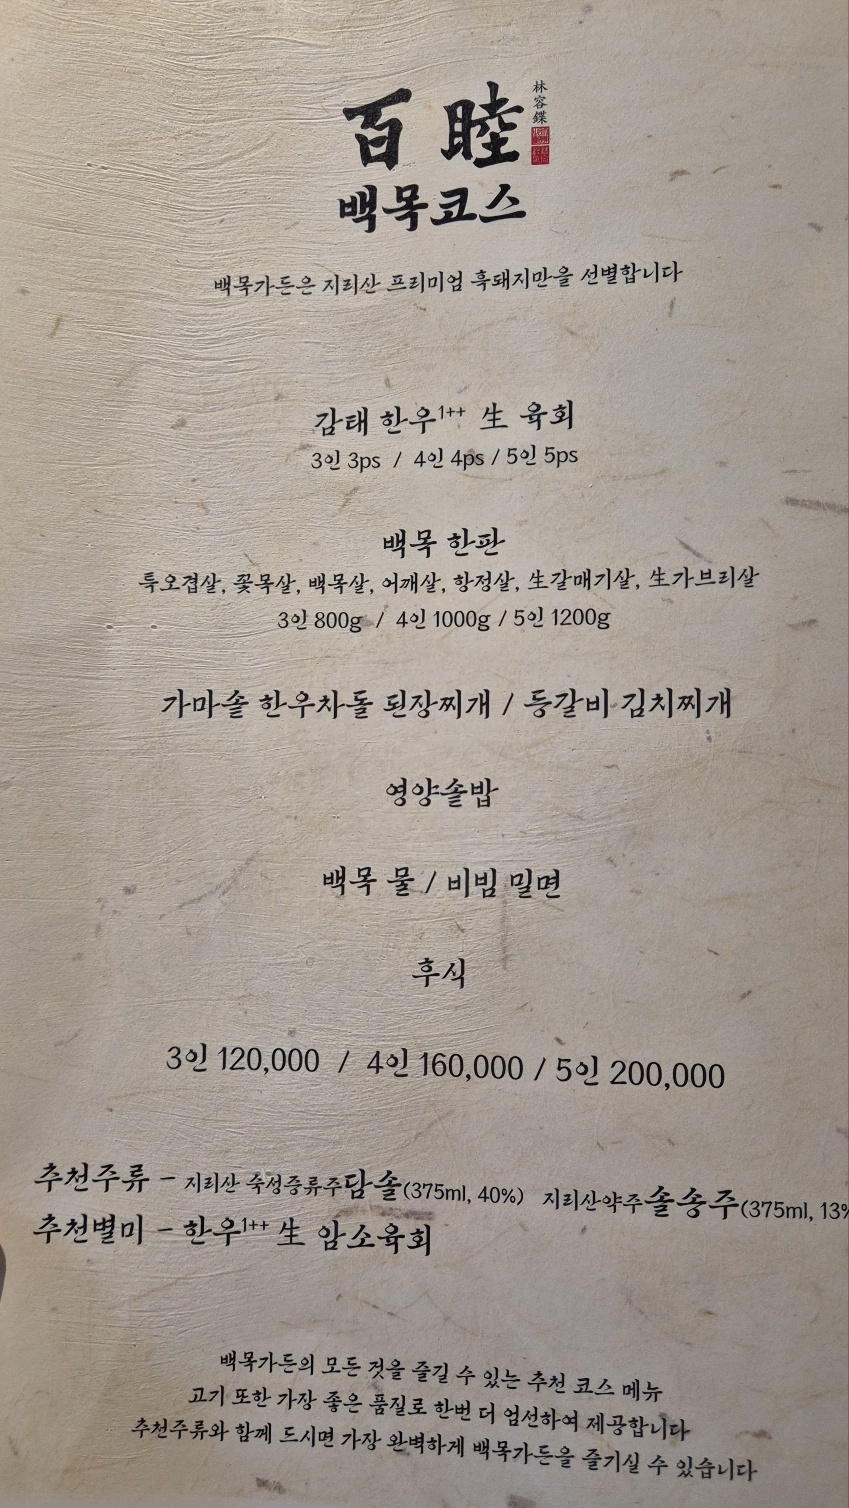 百睦
林容鏶
백목코스
백목가든은 지리산 프리미엄 흑돼지만을 선별합니다
감태 한우1++ 生 육회
3인 3ps / 4인 4ps / 5인 5ps
백목 한판
특오겹살, 꽃목살, 백목살, 어깨살, 항정살, 生갈매기살, 生가브리살
3인 800g / 4인 1000g / 5인 1200g
가마솥 한우차돌 된장찌개 / 등갈비 김치찌개
영양솥밥
백목 물 / 비빔 밀면
후식
3인 120,000 / 4인 160,000 / 5인 200,000
추천주류 - 지리산 숙성증류주담솔(375ml, 40%) 지리산약주솔송주(375ml, 13%
추천별미 - 한우1++ 生 암소육회
백목가든의 모든 것을 즐길 수 있는 추천 코스 메뉴
고기 또한 가장 좋은 품질로 한번 더 엄선하여 제공합니다
추천주류와 함께 드시면 가장 완벽하게 백목가든을 즐기실 수 있습니다